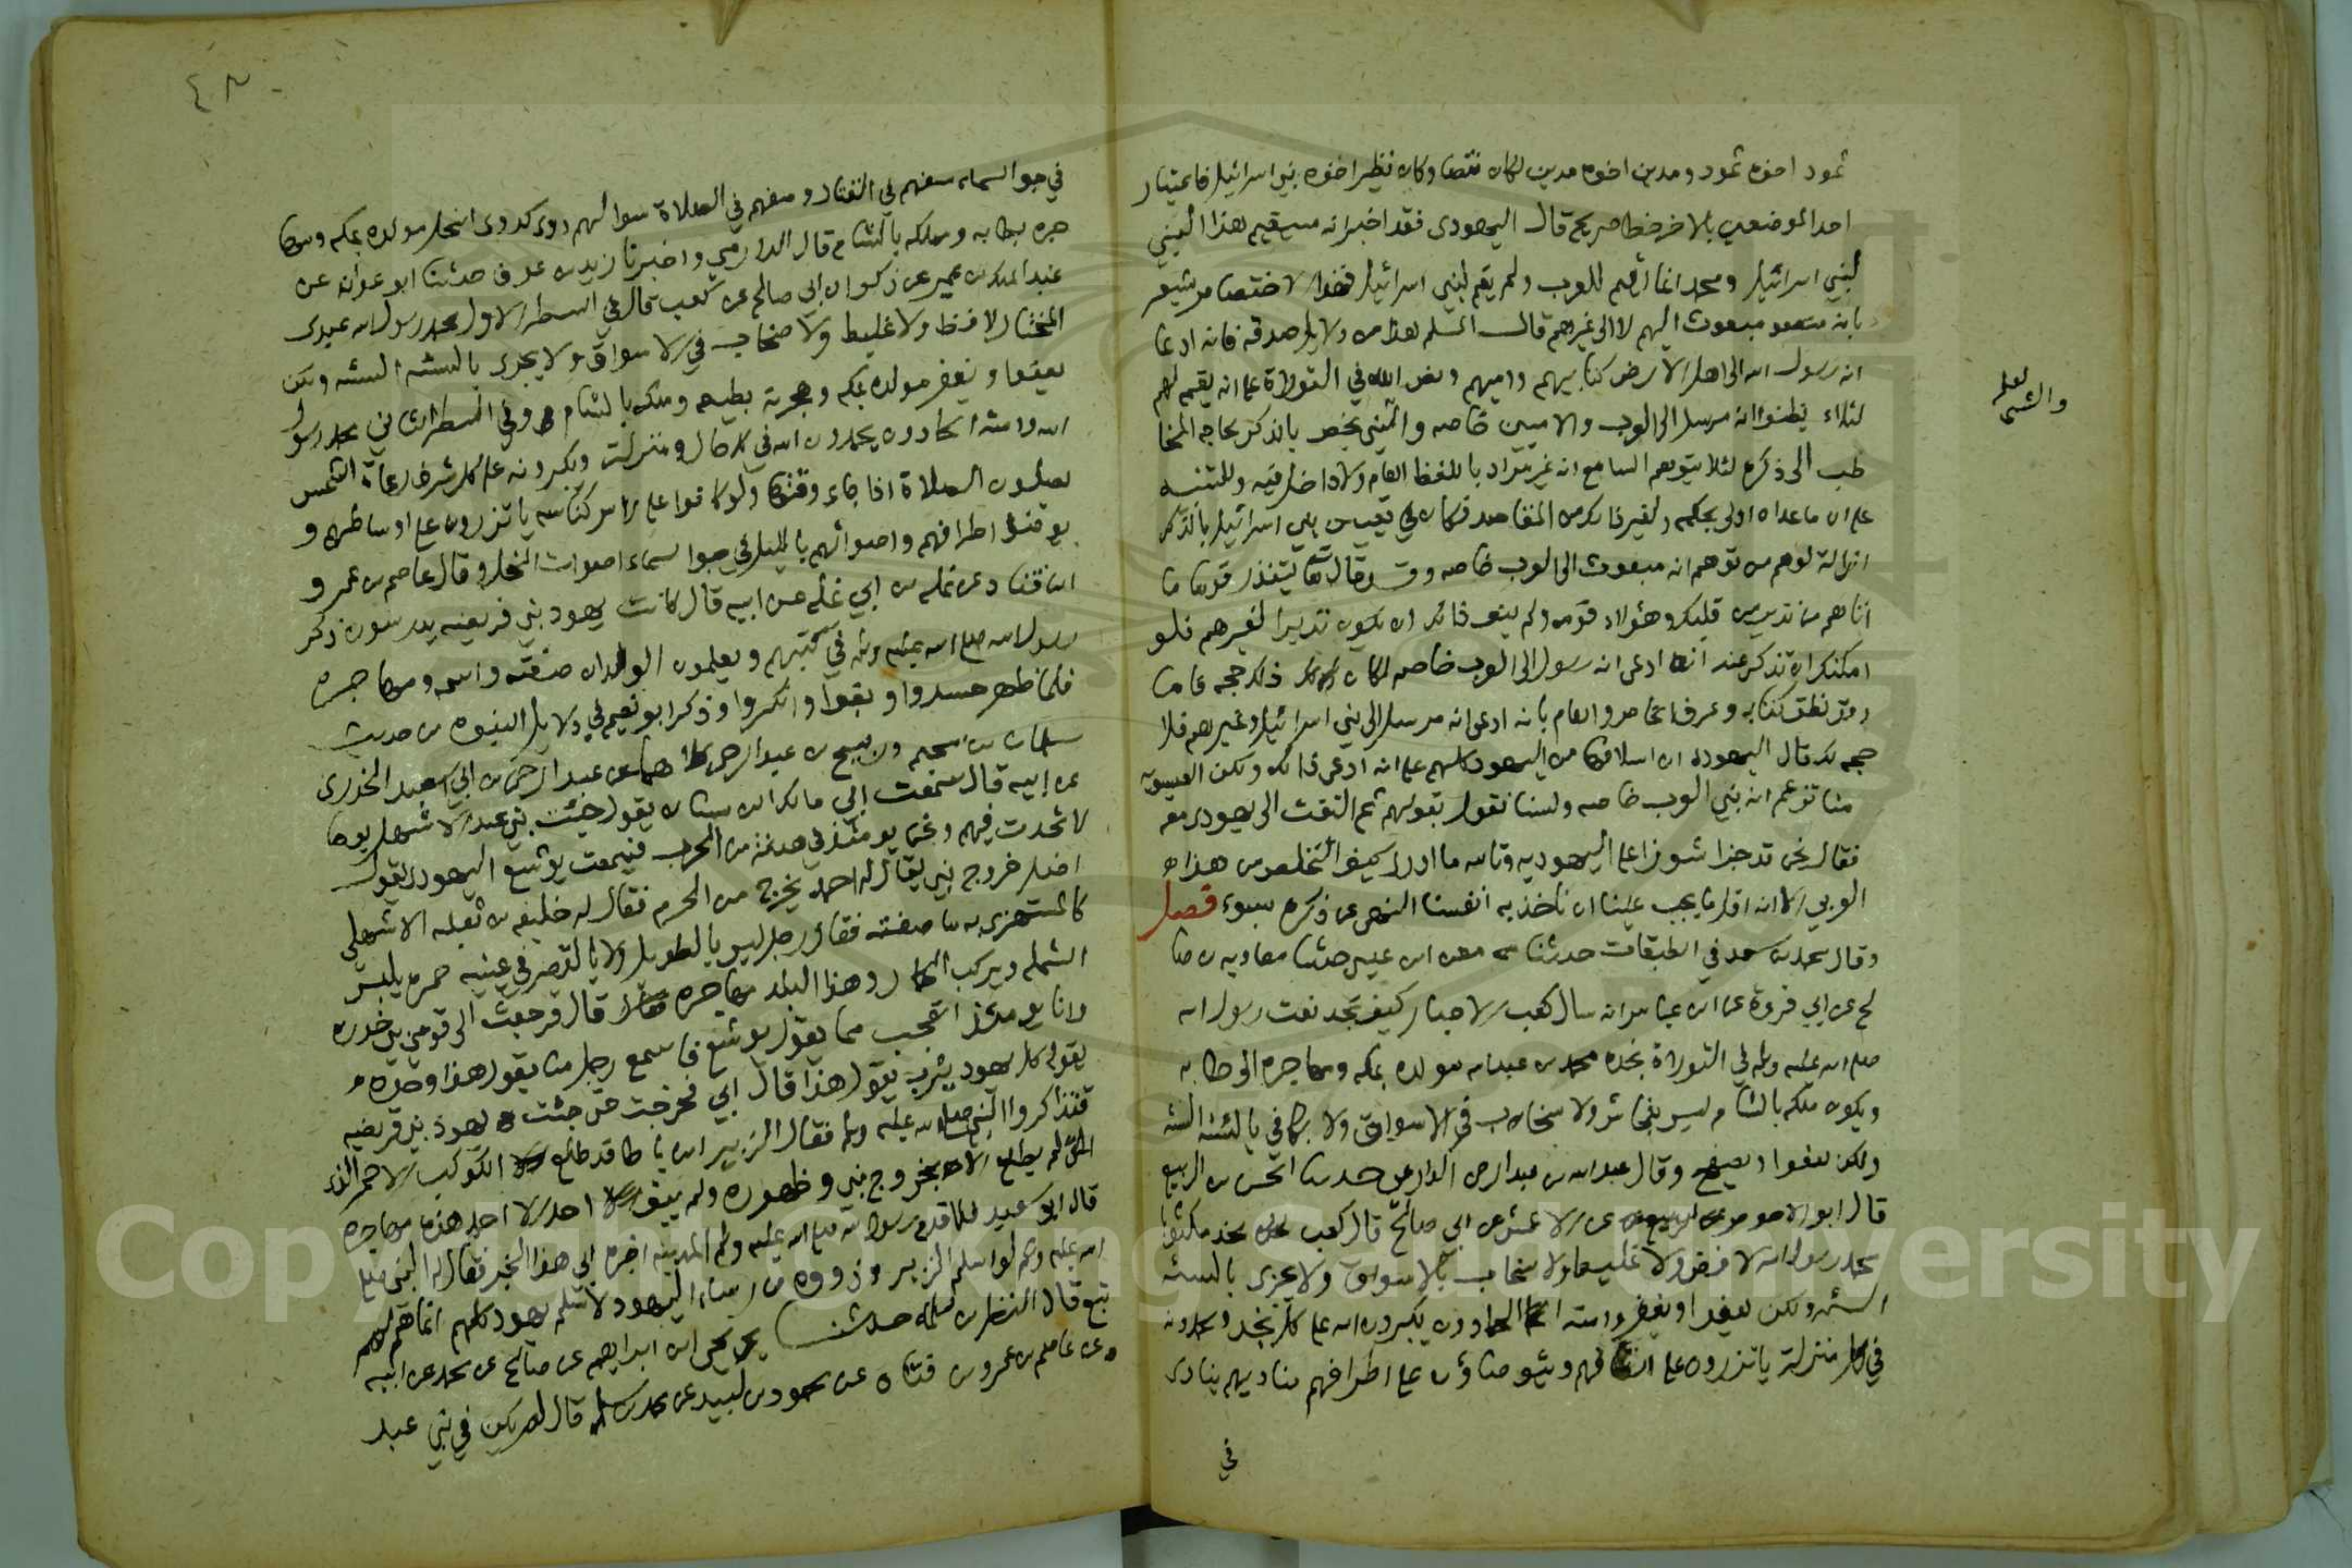 ثمود اخوه ثمود ومدين اخوه مدين لكان نقصا وكان نظير اخوه بني اسرائيل فاعتبار
احد الموضعين بالاخر خطا صريح قال اليهودى فقد اخبر انه سيقيم هذا النبي
لبني اسرائيل ومحمد انما اقيم للعرب ولم يقم لبني اسرائيل فهذا الاختصاص يشعر
بانه مبعوث اليهم لا الى غيرهم قال المسلم هذا من دلايل صدقه فانه ادعا
انه رسول الله الى اهل الارض كتابيهم واميهم ونص الله في التوراة على انه يقيمه لهم
لئلا يظنوا انه مرسل الى العرب والاميين خاصه والشي يخص بالذكر لحاجه المخا
طب الى ذكره لئلا يتوهم السامع انه غير مراد باللفظ العام ولا داخل فيه وللتنبيه
على ان ما عداه اولى بحكمه ولغير ذلك من المقاصد فكان في تعيين بني اسرائيل بالذكر
ازالة لوهم من توهم انه مبعوث الى العرب خاصه وقد قال تعالى لتنذر قوما ما
اتاهم من نذير من قبلك وهؤلاء قومه ولم ينف ذلك ان يكون نذيرا لغيرهم فلو
امكنك ان تذكر عنه انه ادعى انه رسول الى العرب خاصه لكان ذلك حجه فاما
وقد نطق كتابه وعرف الخاص والعام بانه ادعى انه مرسل الى بني اسرائيل وغيرهم فلا
حجه لك قال اليهودى ان اسلافنا من اليهود كلهم على انه ادعى ذلك ولكن العيسويه
منا تزعم انه نبي العرب خاصه ولسنا نقول بقولهم ثم التفت الى يهودى معه
فقال نحن قد جرا شوزنا على اليهوديه وتالله ما ادرى كيف التخلص من هذا
العربي الا انه اقل ما يجب علينا ان ناخذ به انفسنا النهي عن ذكره بسوء فصل
وقال محمد بن سعد في الطبقات حدثنا معن بن عيسى حدثنا معاويه بن صا
لح عن ابي فروة عن ابن عباس انه سال كعب الاحبار كيف تجد نعت رسول الله
صلى الله عليه وسلم في التوراة نجده محمد بن عبدالله مولده بمكه ومهاجره الى طابه
ويكون ملكه بالشام ليس بفحاش ولا سخاب في الاسواق ولا يكافي بالسيئه السيئه
ولكن يعفوا ويصفح وقال عبد الله بن عبد الرحمن الدارمي حدثنا الحسن بن الربيع
قال ابو الاحوص عن الاعمش عن ابي صالح قال كعب نجد مكتوبا
محمد رسول الله لا فظ ولا غليظ ولا سخاب بالاسواق ولا يجزى بالسيئه
السيئه ولكن يعفوا ويغفر وامته الحمادون يكبرون الله على كل نجد ويحمدونه
في كل منزلة ياتزرون على انصافهم ويتوضاؤن على اطرافهم مناديهم ينادى
في
لعله
والشي
٤٨
في جو السماء صفهم في القتال وصفهم في الصلاة سوا لهم دوى كدوى النحل مولده بمكه ومها
جره بطابه وملكه بالشام قال الدارمي واخبرنا زيد بن عوف حدثنا ابو عوانه عن
عبد الملك بن عمير عن ذكوان ابي صالح عن كعب قال في السطر الاول محمد رسول الله عبدى
المختار لا فظ ولا غليظ ولا صخاب في الاسواق ولا يجزى بالسيئه السيئه ولكن
يعفوا ويغفر مولده بمكه وهجرته بطيبه وملكه بالشام وفي السطر الثاني محمد رسول
الله وامته الحمادون يحمدون الله في كل حال ومنزلت ويكبرونه على كل شرف رعاة الشمس
يصلون الصلاة اذا جاء وقتها ولو كانوا على راس كناسه ياتزرون على اوساطهم و
يوضئون اطرافهم واصواتهم بالليل في جو السماء اصوات النحل وقال عاصم بن عمر و
ابن قتاده عن نمله بن ابي نمله عن ابيه قال كانت يهود بني قريضه يدرسون ذكر
رسول الله صلى الله عليه وسلم في كتبهم ويعلمون الولدان صفته واسمه ومهاجره
فلما ظهر حسدوا وبغوا وانكروا وذكر ابو نعيم في دلايل النبوه من حديث
سليمان بن سحيم وربيح بن عبد الرحمن كلاهما عن عبد الرحمن بن ابي سعيد الخدرى
عن ابيه قال سمعت ابي مالك ابن سنان يقول جئت بني عبد الاشهل يوما
لاتحدث فيهم ونحن يومئذ في هدنة من الحرب فسمعت يوشع اليهودى يقول
اظل خروج نبي يقال له احمد يخرج من الحرم فقال له خليفه بن ثعلبه الاشهلي
كالمستهزى به ما صفته فقال رجل ليس بالطويل ولا بالقصير في عينيه حمره يلبس
الشمله ويركب الحمار وهذا البلد مهاجره قال فرجعت الى قومي بني خدره
وانا يومئذ اتعجب مما يقول يوشع فاسمع رجل منا يقول هذا وحده
يقوله كل يهود يثرب تقول هذا قال ابي فخرجت حتى جئت يهود بني قريضه
فتذاكروا النبي صلى الله عليه وسلم فقال الزبير ابن باطا قد طلع الكوكب الاحمر الذى
لم يطلع الا بخروج نبي وظهوره ولم يبق احد الا احمد هذه مهاجره
قال ابو سعيد فلما قدم رسول الله صلى الله عليه وسلم المدينه اخبره ابي هذا الخبر فقال النبي صلى
الله عليه وسلم لو اسلم الزبير وذووه من رؤساء اليهود لاسلم يهود كلهم انما هم لهم
تبع قال النضر بن سلمه حدثنا يحيى بن ابراهيم عن صالح عن محمد عن ابيه
عن عاصم بن عمر بن قتاده عن محمود بن لبيد عن محمد بن مسلمه قال لم يكن في بني عبد
Copyright © King Saud University